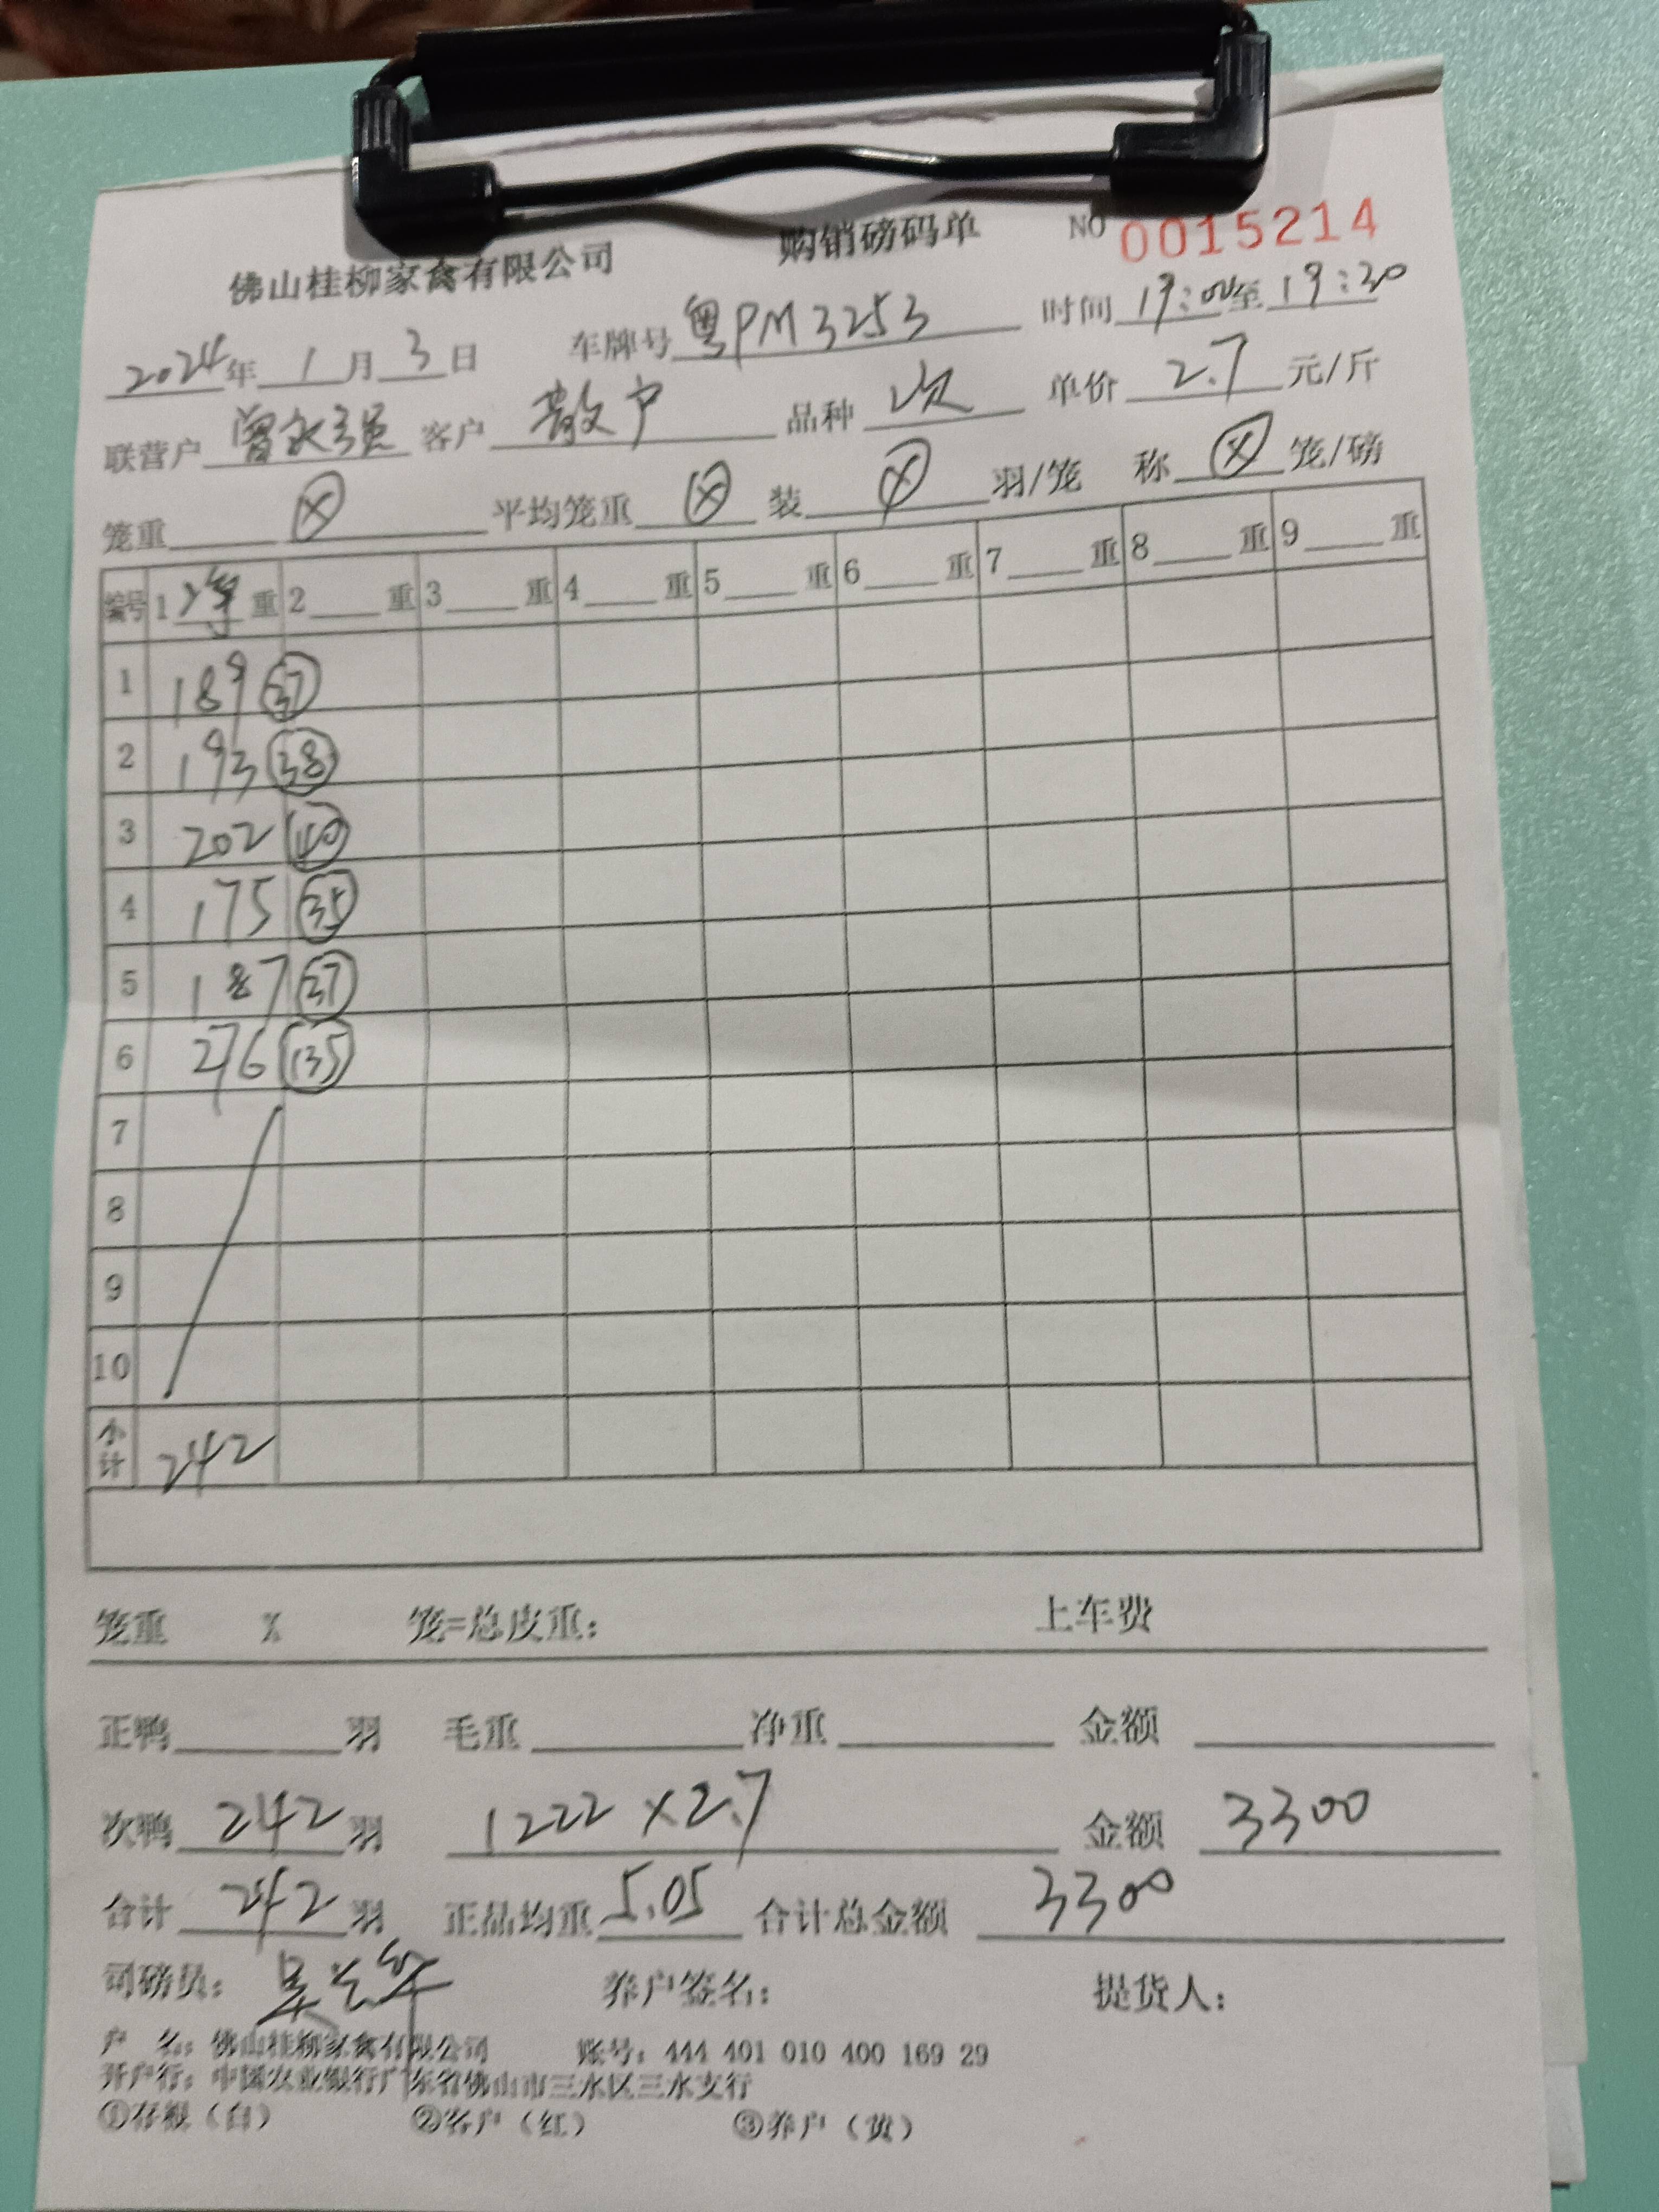 佛山桂柳家禽有限公司 购销磅码单 NO 0015214
2024年1月3日 车牌号 粤PM3253 时间 19:00至19:20
联营户 曾永强 客户 散户 品种 次 单价 2.7 元/斤
笼重 ⓧ 平均笼重 ⓧ 装 ⓧ 羽/笼 称 ⓧ 笼/磅
编号 1 净 重 2 重 3 重 4 重 5 重 6 重 7 重 8 重 9 重
1 189 (37)
2 193 (38)
3 202 (40)
4 175 (35)
5 187 (37)
6 276 (135)
7
8
9
10
小计 242
笼重 X 笼=总皮重: 上车费
正鸭 羽 毛重 净重 金额
次鸭 242 羽 1222×2.7 金额 3300
合计 242 羽 正品均重 5.05 合计总金额 3300
司磅员: 养户签名: 提货人:
户 名: 佛山桂柳家禽有限公司 账号: 444 401 010 400 169 29
开户行: 中国农业银行广东省佛山市三水区三水支行
①存根(白) ②客户(红) ③养户(黄)